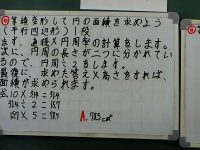 ◎算数変形して円の面積を求めよう
(平行四辺形)1段
まず、直径×円周率の計算をします。
次に、円周の長さが二つに分かれてい
るので、円周÷2をします。
最後に、求めた答え×高さをすれば、
面積が求められます。
式10×3.14=31.4
31.4÷2=15.7
15.7×5=78.5
A.78.5cm²